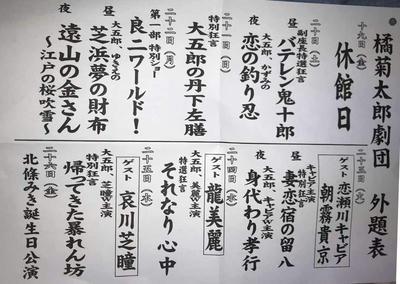 橘菊太郎劇団　外題表
十九日(金)
休館日
二十日(土)
昼
副座長特選狂言
バテレン鬼十郎
夜
恋の釣り忍
二十一日(日)
特別狂言
大五郎の丹下左膳
二十二日(月)
第一部 特別ショー
良二ワールド!
昼
芝浜夢の財布
夜
遠山の金さん
～江戸の桜吹雪～
二十三日(火)
ゲスト
恋瀬川キャビア
朝霧貴京
昼
キャビア主演
特別狂言
妻恋宿の留八
夜
大五郎、キャビアW主演
身代わり孝行
二十四日(水)
ゲスト
龍美麗
大五郎、美麗W主演
特選狂言
それなり心中
二十五日(木)
ゲスト
哀川芝瞳
大五郎、芝瞳W主演
特別狂言
帰ってきた暴れん坊
二十六日(金)
北條みき誕生日公演